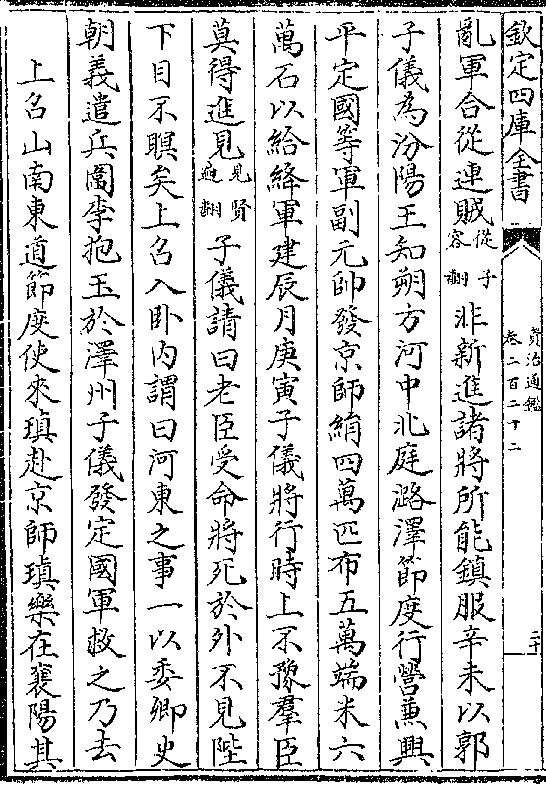 欽定四庫全書
資治通鑑
卷二百二十二
二十
亂軍合從連賊從子容翻非新進諸將所能鎮服辛未以郭
子儀為汾陽王知朔方河中北庭潞澤節度行營兼興
平定國等軍副元帥發京師絹四萬匹布五萬端米六
萬石以給絳軍建辰月庚寅子儀將行時上不豫羣臣
莫得進見見賢遍翻子儀請曰老臣受命將死於外不見陛
下目不瞑矣上召入卧内謂曰河東之事一以委卿史
朝義遣兵圍李抱玉於澤州子儀發定國軍救之乃去
上召山南東道節度使來瑱赴京師瑱樂在襄陽其